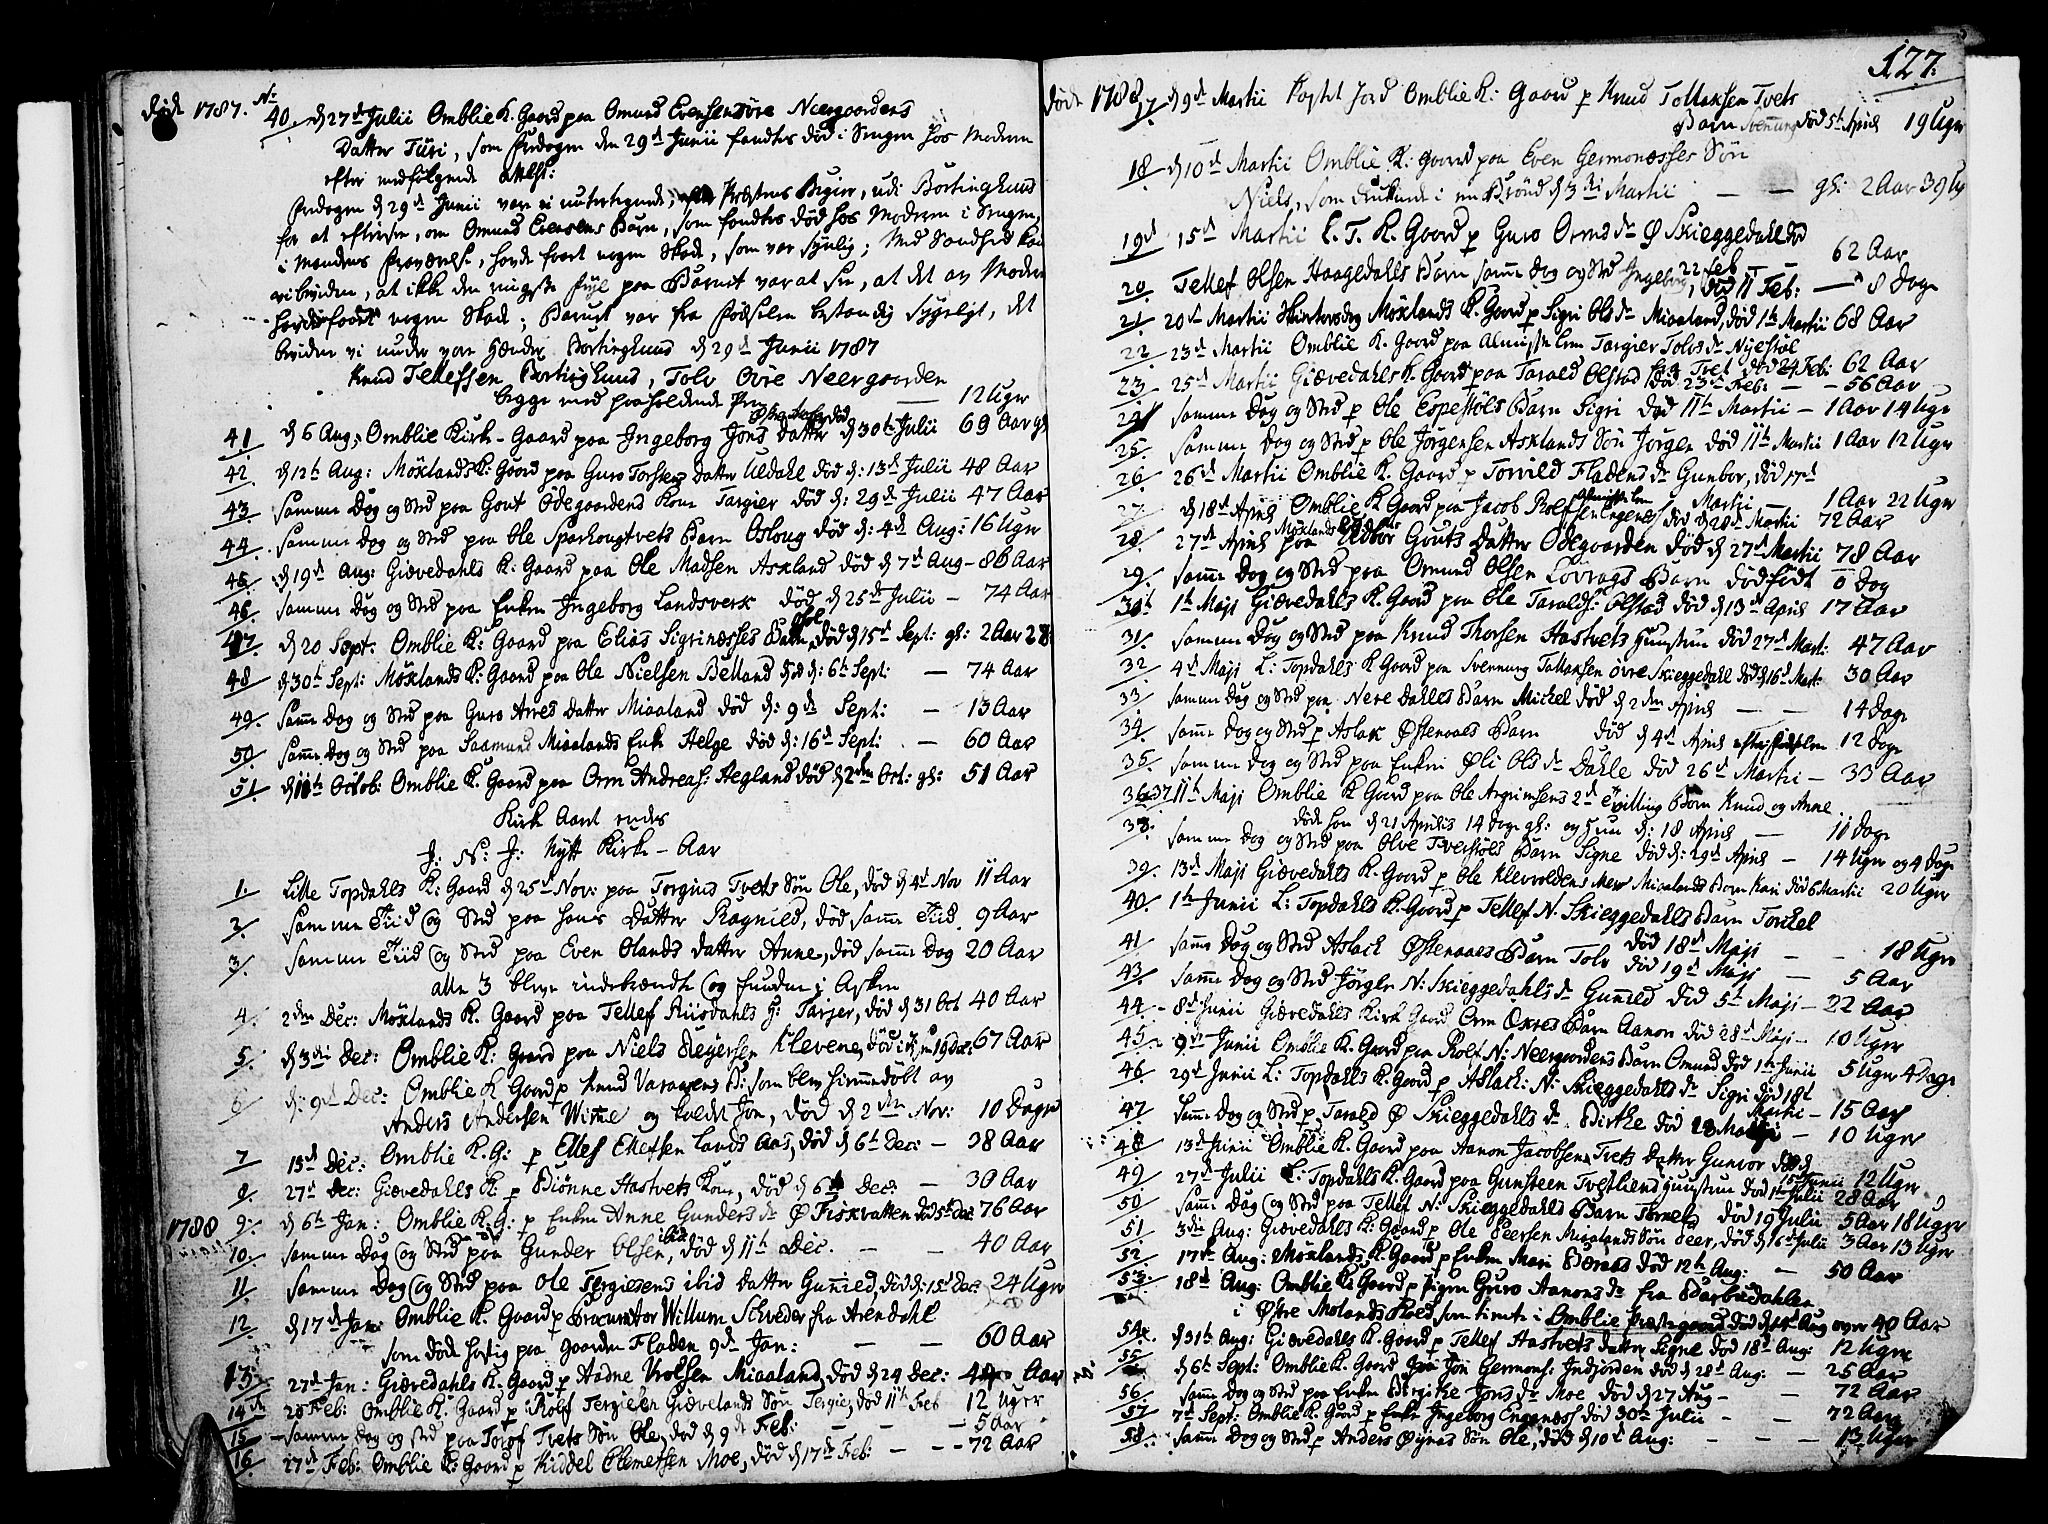 død 1787. No
40. d 27d Julii Omblie K. Gaard paa Omund Evensen øvre Neergaardens
Datter Turi, som Fredagen den 29d Junii fandtes død i Sengen hos Moderen
efter medfølgende attest:
Fredagen d 29d Junii var vi undertegnede, Præstens Begier, udi Bortinghuus
for at efterse, om Omund Evensens Barn, som fandtes død hos Moderen i Sengen,
i Mandens Fraværelse, havde faaet nogen Skade, som var synlig; Med Sandhed kan
vi bevidne, at ikke den ringeste Feyl paa Barnet var at see, at det av Moderen
havde faaet nogen Skade; Barnet var fra Fødselen bestandig sygeligt, det
bevidner vi under vore Hænder. Bortinghuus d 29d Junii 1787
Knud Tellefsen Bortinghuus, Tolv Øvre Neergaarden
begge med paaholdende Pen — 12 Uger
41/ d 6 Aug: Omblie Kirk-Gaard paa Ingeborg Jons Datter død d 30th Julii 69 Aar
42. d 12th Aug: Moxlands K: Gaard paa Guro Torsters Datter Uldahl død d: 13d Julii 48 Aar
43. samme Dag og Sted paa Gout Ødegaardens Kone Targier død d: 29d Julii 47 Aar
44. samme Dag og Sted paa Ole Sparhougtvets Barn Osloug død d: 4d Aug: 16 Uger
45. d 19d Aug: Giævedahls K: Gaard paa Ole Madsen Askland død d 7d Aug - 86 Aar
46. samme Dag og Sted paa Enken Ingeborg Landsverk død d 25d Julii — 74 Aar
47. d 20 Sept. Omblie K: Gaard paa Elias Sigrinæsses Barn, død d 15d Sept: gl: 2 Aar 28
48 d 30th Sept: Moxlands K: Gaard paa Ole Nielsen Belland død d: 6th Sept: — 74 Aar
49. samme Dag og Sted paa Guro Arnes Datter Miaaland død d: 9d Sept: — 13 Aar
50. samme Dag og Sted paa Saamund Miaalands Enke Helge død d: 16d Sept: — 60 Aar
51. d 11th Octob: Omblie K: Gaard paa Orm Andreas: Hegland død d 2den Oct: gl: 51 Aar
Kirk Aaret endes
J: N: J: Nytt Kirk-Aar
1. Lille Topdahls K: Gaard d 25d Nov: paa Torgius Tvets Søn Ole, død d 4d Nov 11 Aar
2. samme Tiid og Sted paa hans Datter Ragnild, død samme Tiid 9 Aar
3. samme Tiid og Sted paa Even Olands Datter Anne, død samme Dag 20 Aar
alle 3 bleve indebrændte og fundne i Asken
4. 2den Dec: Moxlands K. Gaard paa Tellef Riisdahls H: Tarjer, død d 31 Oct 40 Aar
5. d 3die Dec: Omblie K: Gaard paa Niels Reyersen Klevene, død 67 Aar
6. d: 9d Dec: Omblie K Gaard p Knud Varaasens B: som blev hiemmedøbt av
Anders Andersen Wistne og kaldt Jon, død d 2den Nov: 10 Dager
7 15d Dec: Omblie K.G: p Ellef Ellefsen Lands Aas, død d 6th Dec: — 38 Aar
8 27d Dec: Giævedahls K. p Biønne Hastvets Kone, død d 6d Dec: — 30 Aar
1788 9. d 6th Jan: Omblie K.G: p Enken Anne Gunders Dr Ø Fiskvatten død 5th Dec 76 Aar
10. samme Dag og Sted paa Gunder Olsen ibid, død d 11th Dec. — 40 Aar
11 samme Dag og Sted paa Ole Tergiesens ibid Datter Gunild, død d: 15d Dec: 24 Uger
12 d 17d Jan: Omblie K. Gaard p Procurator Willum Schrøder fra Arendahl
som døde hastig paa Gaarden Fladen 9d Jan: — 60 Aar
13. 27d Jan: Giævedahls K. Gaard p Aadne Wrolsen Miaaland, død d 24 Dec: 44 Aar
14d 20 Feb: Omblie K. Gaard p Rolf Tergiesen Giævelands Søn Tergie, død 11th Feb 12 Uger
15 samme Dag og Sted paa Torof Tvets Søn Ole, død d 9d Feb: — 5 Aar
16 27d Feb: Omblie K: Gaard p Kiddel Clemetsen Moe, død d 17d Feb: — 72 Aar
127.
døde 1788. 17 d 9d Martii kastet Jord Omblie K: Gaard p Knud Tollaksen Tvets
Barn Svenung død 5th April 19 Uger
18 d 10d Martii Omblie K: Gaard paa Even Germonæsses Søn
Niels, som druknede i en Brønd d 3die Martii — gl: 2 Aar 39 Ug
19d 15d Martii L. T. K. Gaard p Guro Orms Dr Ø Skieggedahl død 22 Feb — 62 Aar
20 Tellef Olsen Haagedahls Barn samme Dag og Sted Ingeborg, død 11 Feb: — 8 Dage
21 20d Martii Skiertorsdag Moxlands K. Gaard p Sigri Ols Dr Miaaland, død 1th Martii 68 Aar
22 23d Martii Omblie K. Gaard paa Almisse Lem Targier Tolvs Dr Nyestøl
død 24 Feb: 62 Aar
23 25d Martii Giævedahls K. Gaard paa Tarald Olstad død 23d Feb: — 56 Aar
24 samme Dag og Sted p Ole Espestøls Barn Sigri død 11th Martii — 1 Aar 14 Uger
25. samme Dag og Sted p Ole Jørgensen Asklands Søn Jørgen død 11th Martii 1 Aar 12 Uger
26 26d Martii Omblie K. Gaard p Torvild Fladens Dr Gunbor, død 17d
Martii 1 Aar 22 Uger
27. d 18d April Omblie K Gaard paa Jacob Rolfsen Engenes Almisse Lem død d 28d Martii 72 Aar
28 27d April Moxlands paa Gouts Datter Ødegaarden død d 27d Martii 78 Aar
29. samme Dag og Sted paa Omund Olsen Lovrags Barn dødfødt 0 Dag
30th 1th Maji Giævedahls K. Gaard paa Ole Taralds: Olstad død d 13d April 17 Aar
31. samme Dag og Sted paa Knud Thorsen Hastvets Hustrue død 27d Mart: 47 Aar
32 4d Maji L: Topdahls K Gaard paa Svennung Tallaksen øvre Skieggedahl død d 16d Mart: 30 Aar
33. samme Dag og Sted paa Nere Dahles Barn Mickel død d 2den April — 14 Dage
34. samme Dag og Sted p Aslak Østenaaes Barn død d 4d April 12 Dage
35. samme Dag og Sted paa Enken Øli Ols Dr Dahle død 26d Martii — 33 Aar
36 37 11th Maji Omblie K Gaard paa Ole Asgrimsens 2de Tvilling Børn Knud og Anne
døde han d 21 Aprilis 14 Dage gl: og Hun d: 18 April — 11 Dage
38. samme Dag og Sted paa Olve Tveitstøls Barn Signe død d: 29d April — 14 Uger og 4 Dag:
39. 13d Maji Giævedahls K. Gaard p Ole Klevvoldens Miaalands Barn Kari død 6 Martii 20 Uger
40. 1th Junii L: Topdahls K. Gaard p Tellef N. Skieggedahls Barn Torkel
død 18d Maji — 18 Uger
41 samme Dag og Sted Aslack Østenaaes Barn Tolv død 19d Maji — 5 Aar
43. samme Dag og Sted Jørgen N: Skieggedahls Dr Gunild død 5th Maji — 22 Aar
44 - 8d Junii Giævedahls Kirk Gaard Orm Oxnes Barn Aanon død 28d Maji — 10 Uger
45 - 9d Junii Omblie K. Gaard paa Rolf N: Neergaardens Barn Omund død 1th Junii 5 Uger 4 Dage
46. 29d Junii L: Topdahls K. Gaard p Aslack: N: Skieggedahls Dr Sigri død 18d
Martii — 15 Aar
47 samme Dag og Sted p Tarald Ø Skieggedahls Dr Birthe død — 10 Uger
48 13d Junii Omblie K. Gaard paa Aanon Jacobsen Tvets Datter Gunvor død
Junii 12 Uger
49 27d Julii L: Topdahls K: Gaard paa Gunsteen Tvetliens Hustrue død 1th Julii 28 Aar
50 samme Dag og Sted paa Tellef N: Skieggedahls Barn død 19 Julii 5 Aar 18 Uger
51 3die Aug: Giævedahls K: Gaard p Ole Peersen Miaalands Søn Peer, død d 16d Julii 3 Aar 13 Uger
52 17d Aug: Moxlands K. Gaard p Enken Mari død 12th Aug: — 50 Aar
53. 18d Aug: Omblie K: Gaard p Pigen Guro Aanons Dr fra Barbudahlen
i Østre Molands Sogn, som tiente i Omblie Præstegaard død d 14d Aug over 40 Aar
54. d 31th Aug: Giævedahls K. Gaard p Tellef Hastvets Datter Signe død 18d Aug: 12 Uger
55 d 6th Sept: Omblie K. Gaard Jon Germons: Indjorden død d 28d Aug: — 25 Aar
56 samme Dag og Sted paa Enken Birgitte Jons Dr Moe død d 27 Aug — 72 Aar
57 7d Sept: Omblie K. Gaard p Enke Ingeborg Engenæss død 30th Julii — 72 Aar
58. samme Dag og Sted p Anders Øynæs Søn Ole, død d 10d Aug: — 13 Uger